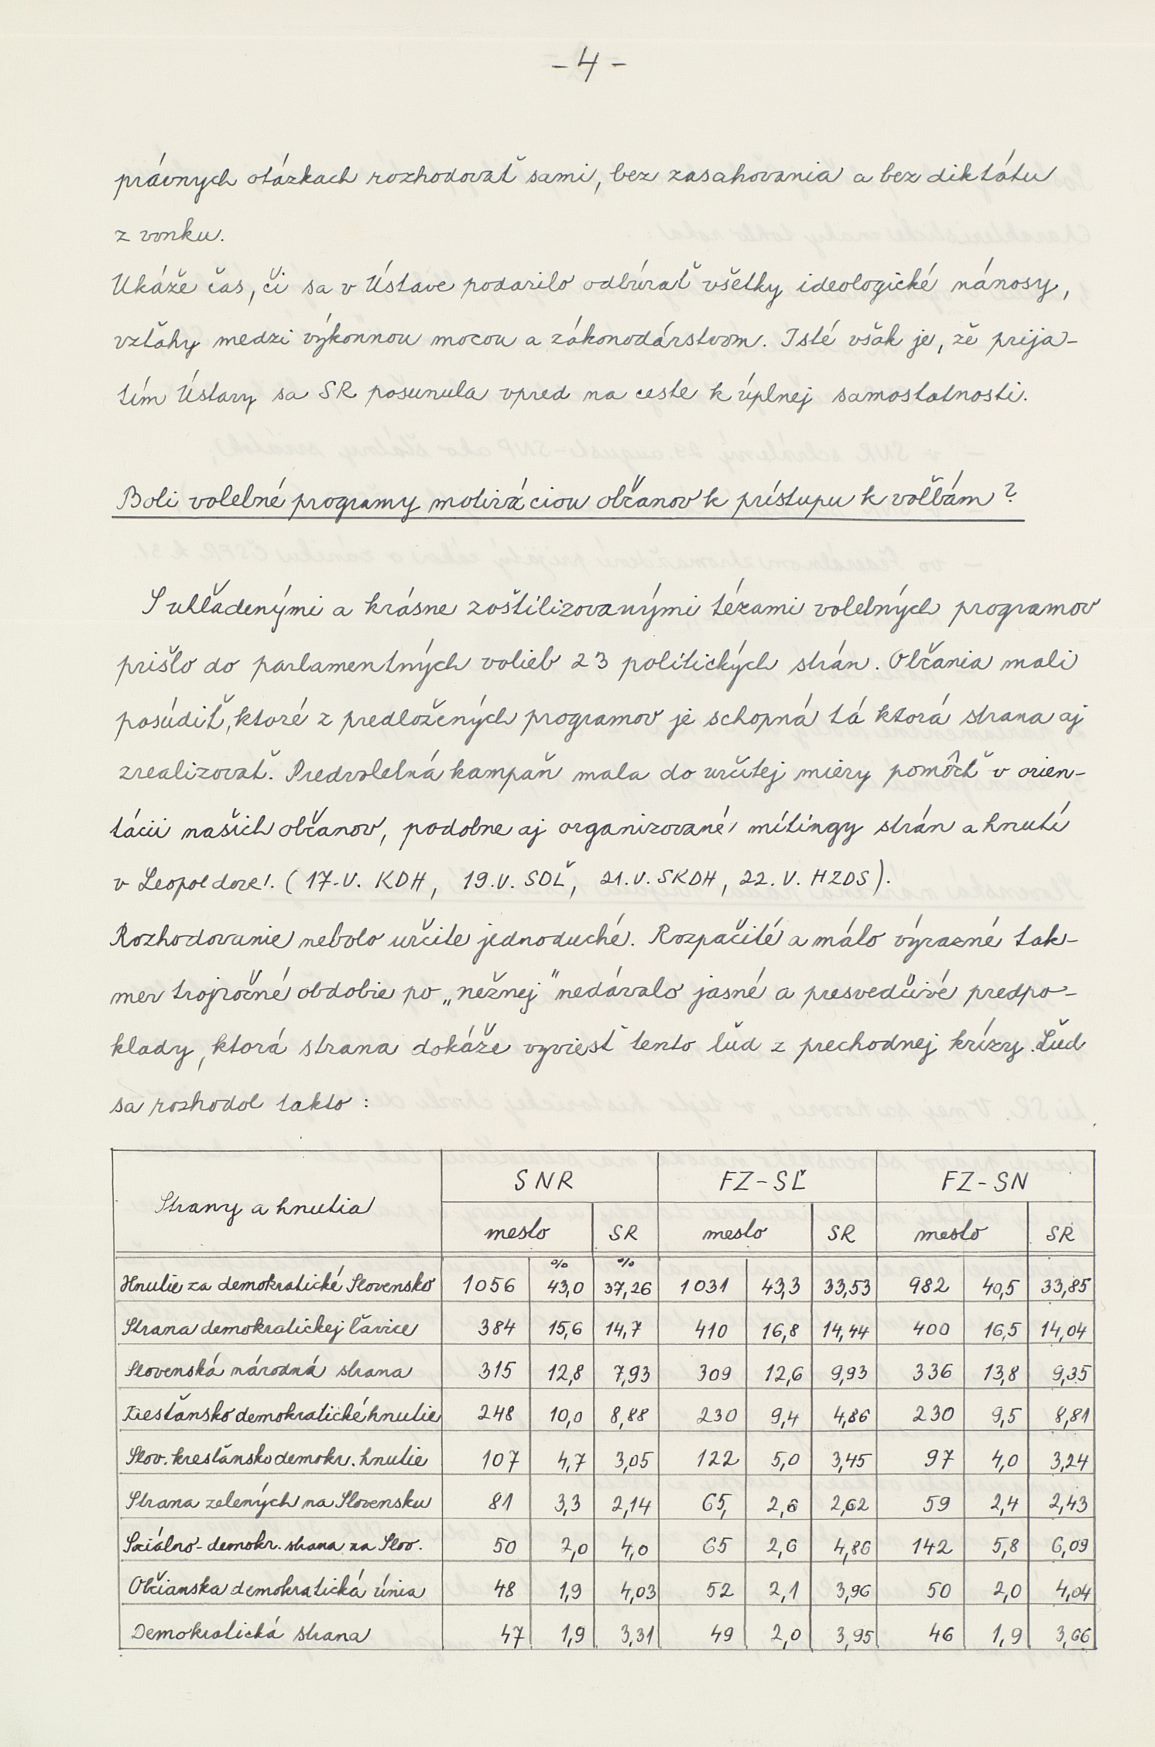 - 4 -
právnych otázkach rozhodovať sami, bez zasahovania a bez diktátu
z vonku.
Ukáže čas, či sa v Ústave podarilo odbúrať všetky ideologické nánosy,
vzťahy medzi výkonnou mocou a zákonodárstvom. Isté však je, že prija-
tím Ústavy sa SR posunula vpred na ceste k úplnej samostatnosti.
Boli volebné programy motiváciou občanov k prístupu k voľbám?
S uhľadenými a krásne zoštilizovanými tézami volebných programov
prišlo do parlamentných volieb 23 politických strán. Občania mali
posúdiť, ktoré z predložených programov je schopná tá ktorá strana aj
zrealizovať. Predvolebná kampaň mala do určitej miery pomôcť v orien-
tácii našich občanov, podobne aj organizované mítingy strán a hnutí
v Leopoldove. (17.V. KDH, 19.V. SDĽ, 21.V. SKDH, 22.V. HZDS).
Rozhodovanie nebolo určite jednoduché. Rozpačité a málo výrazné tak-
mer trojročné obdobie po „nežnej" nedávalo jasné a presvedčivé predpo-
klady, ktorá strana dokáže vyviesť tento ľud z prechodnej krízy. Ľud
sa rozhodol takto:
Strany a hnutia SNR FZ-SĽ FZ-SN
mesto SR mesto SR mesto SR
% %
Hnutie za demokratické Slovensko 1056 43,0 37,26 1031 43,3 33,53 982 40,5 33,85
Strana demokratickej ľavice 384 15,6 14,7 410 16,8 14,44 400 16,5 14,04
Slovenská národná strana 315 12,8 7,93 309 12,6 9,93 336 13,8 9,35
Kresťansko demokratické hnutie 248 10,0 8,88 230 9,4 4,86 230 9,5 8,81
Slov. kresťansko demokr. hnutie 107 4,7 3,05 122 5,0 3,45 97 4,0 3,24
Strana zelených na Slovensku 81 3,3 2,14 65, 2,6 2,62 59 2,4 2,43
Sociálno-demokr. strana na Slov. 50 2,0 4,0 65 2,6 4,86 142 5,8 6,09
Občianska demokratická únia 48 1,9 4,03 52 2,1 3,96 50 2,0 4,04
Demokratická strana 47 1,9 3,31 49 2,0 3,95 46 1,9 3,66